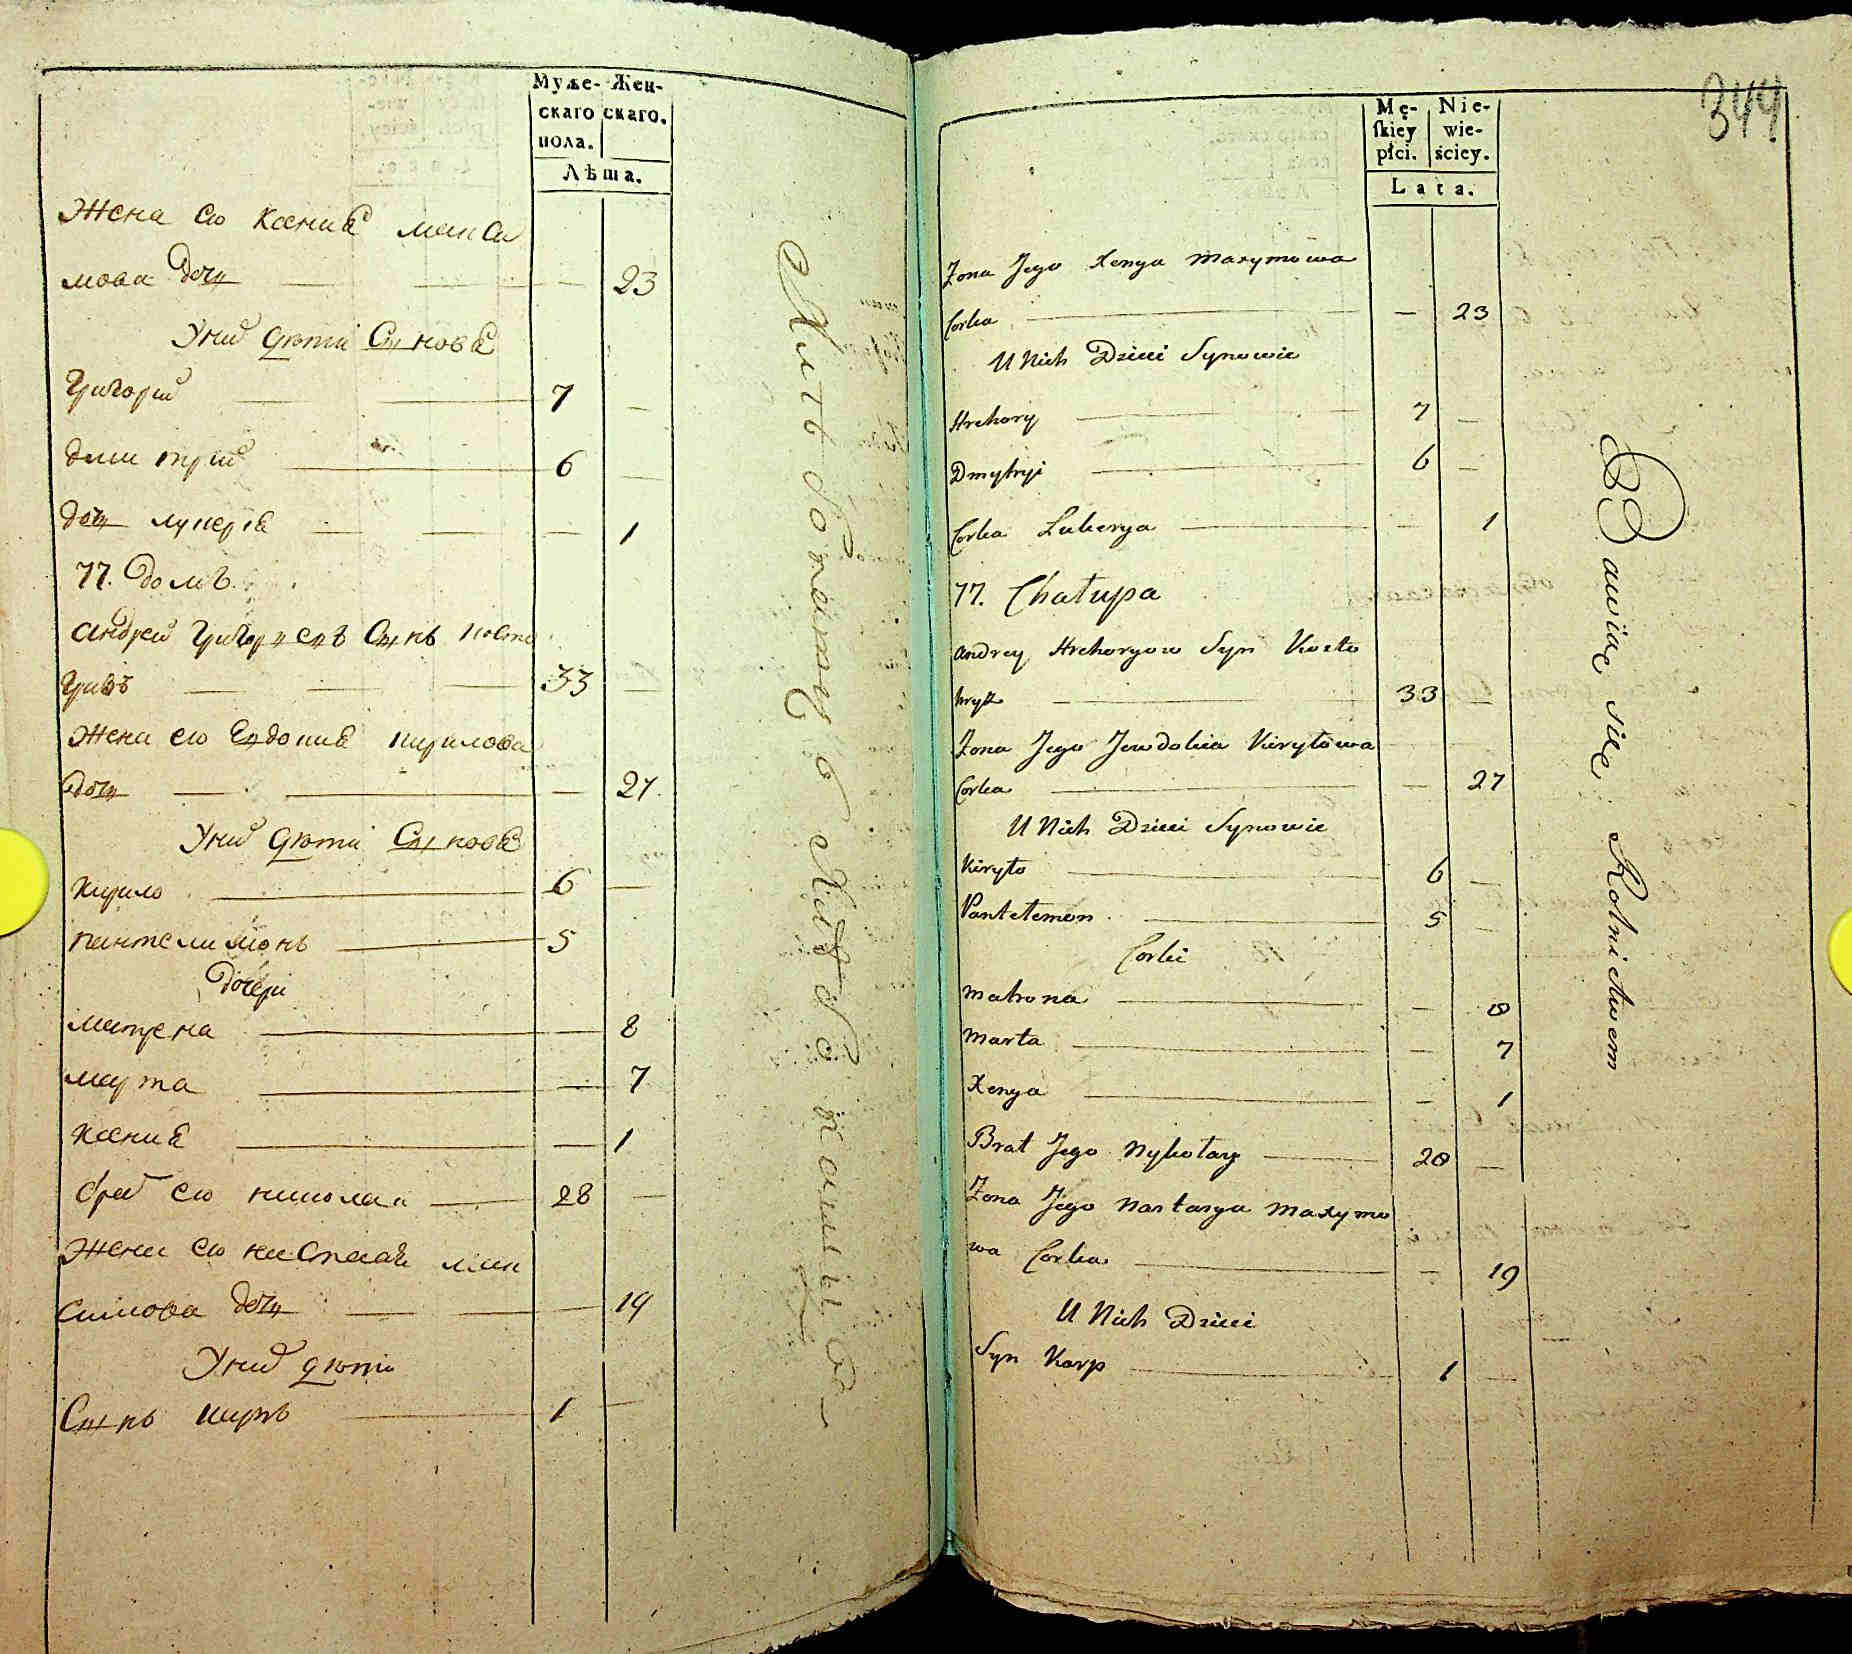 Муже- Жен-
скаго скаго.
пола.
Лѣта.
Жена его Ксениѧ макси
мова дочь 23
У них дѣти Сынове
Григорий 7
димитрий 6
дочь лукерiѧ 1
77. домъ
андрей Григорьевъ Сынъ косто
гризъ 33
Жена его Евдокиѧ кирилова
дочь 27
У них дѣти Сынове
Кирило 6
пантелимонъ 5
дочери
матрена 8
марта 7
ксениѧ 1
брат его николаи 28
Жена его настасиѧ мак
симова дочь 19
У них дѣти
Сынъ карпъ 1
344
Mę- Nie-
ſkiey wie-
płci. ściey.
Lata.
Zona Jego Xenya Maxymowa
Corka 23
U Nich Dzieci Synowie
Hrehory 7
Dmytryi 6
Corka Lukerya 1
77. Chałupa
Andrey Hrehoryow Syn Kosto
hryz 33
Zona Jego Jewdokia Kiryłowa
Corka 27
U Nich Dzieci Synowie
Kiryło 6
Pantelemon 5
Corki
Matrona 8
Marta 7
Xenya 1
Brat Jego Nykołay 28
Zona Jego Nastasya Maxymo
wa Corka 19
U Nich Dzieci
Syn Karp 1
Bawiąc się Rolnictwem